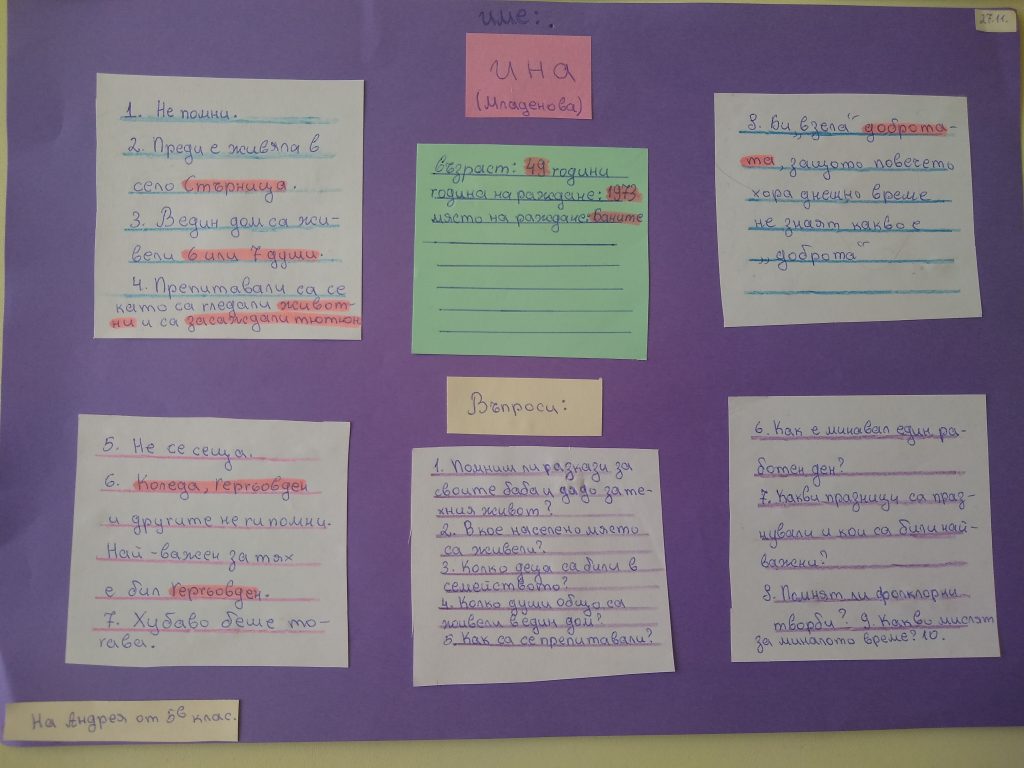 27.11.
име:
Ина
(Младенова)
1. Не помни.
2. Преди е живяла в
село Стърница.
3. В един дом са жи-
вели 6 или 7 души.
4. Препитавали са се
като са гледали живот-
ни и са засаждали тютюн
възраст: 49 години
година на раждане: 1973
място на раждане: Баните
8. Би „взела“ доброта-
та, защото повечето
хора днешно време
не знаят какво е
„доброта“
5. Не се сеща.
6. Коледа, Гергьовден
и другите не ги помни.
Най-важен за тях
е бил Гергьовден.
7. Хубаво беше то-
гава.
Въпроси:
1. Помниш ли разкази за
своите баба и дядо за те-
хния живот?
2. В кое населено място
са живели?
3. Колко деца са били в
семейството?
4. Колко души общо са
живели в един дом?
5. Как са се препитавали?
6. Как е минавал един ра-
ботен ден?
7. Какви празници са праз-
нували и кои са били най-
важни?
8. Помнят ли фолклорни
творби? 9. Какво мислят
за миналото време? 10.
На Андрея от 5в клас.